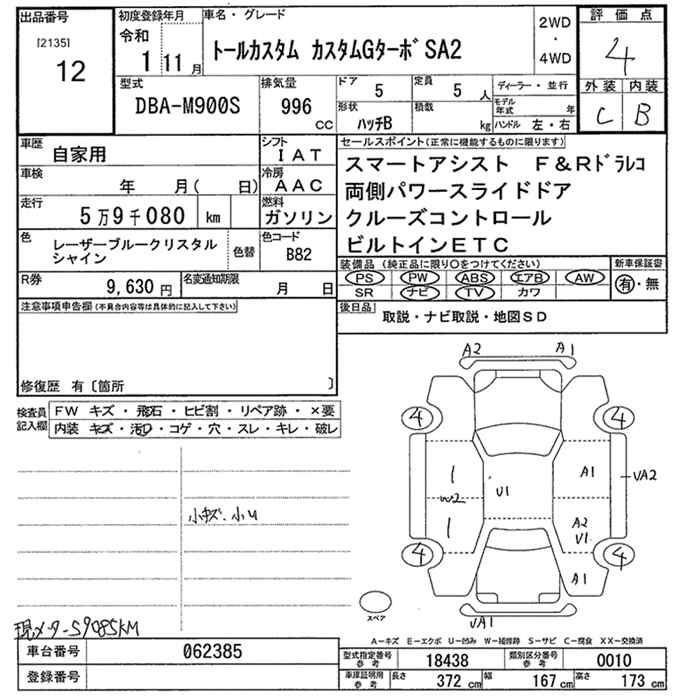 出品番号
[2135]
12
初度登録年月
令和
1 11 月
車名・グレード
トールカスタム カスタムGターボSA2
2WD
・
4WD
評価点
4
外装 内装
C B
型式
DBA-M900S
排気量
996
CC
ドア
5
定員
5 人
形状
ハッチB
積数
kg
ディーラー・並行
モデル
年式 年
ハンドル 左・右
車歴
自家用
シフト
IAT
車検
年 月( 日)
冷房
AAC
走行
5万9千080 km
燃料
ガソリン
色
レーザーブルークリスタル
シャイン
色替
色コード
B82
R券
9,630 円
名変通知期限
月 日
セールスポイント(正常に機能するものに限ります)
スマートアシスト F&Rドラレコ
両側パワースライドドア
クルーズコントロール
ビルトインETC
装備品(純正品に限り○をつけてください)
PS PW ABS エアB AW
SR ナビ TV カワ
新車保証書
有・無
後日品
取説・ナビ取説・地図SD
注意事項申告欄(不具合内容等は具体的に記入して下さい)
修復歴 有〔箇所 〕
検査員
記入欄
FW キズ・飛石・ヒビ割・リペア跡・×要
内装 キズ・汚れ・コゲ・穴・スレ・キレ・破レ
小キズ、小U
現メーター59085KM
A2 A1
4 4
1 A1
W2 U1 VA2
1 A2
V1
4 4
A1
スペア
VA1
A-キズ E-エクボ U-凹み W-補修跡 S-サビ C-腐食 XX-交換済
車台番号
062385
登録番号
型式指定番号
参考
18438
類別区分番号
参考
0010
車庫証明用
参考
長さ
372 cm
幅
167 cm
高さ
173 cm